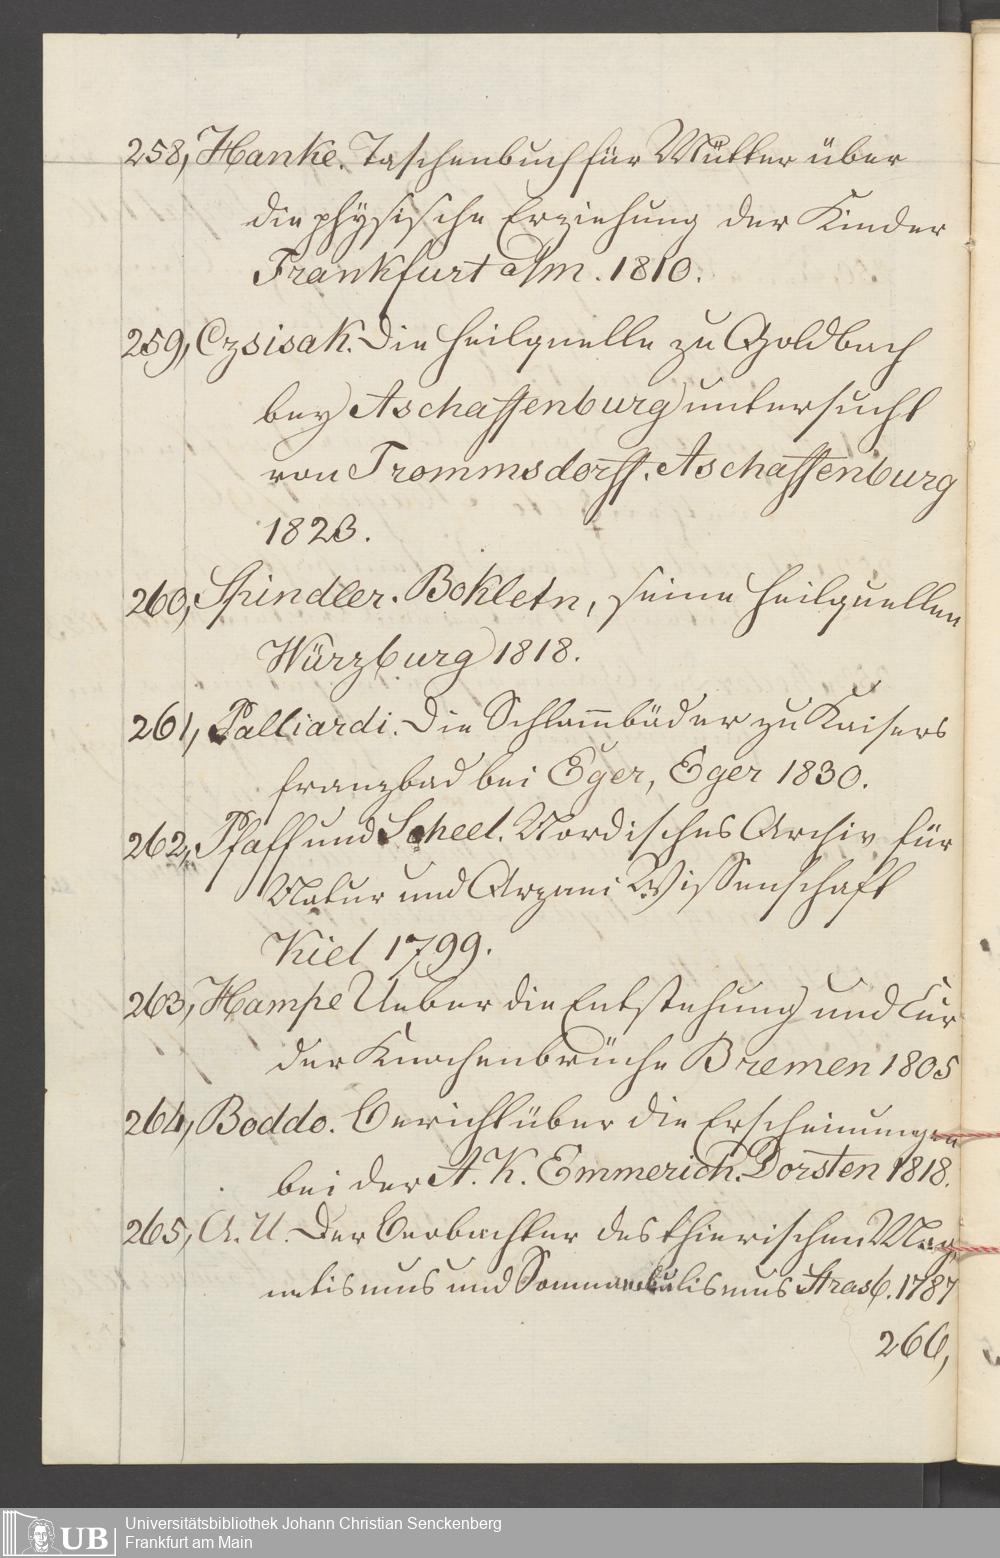 258, Hanke. Taschenbuch für Mütter über
die physische Erziehung der Kinder
Frankfurt a/m. 1810.
259, Czsisak. Die Heilquelle zu Goldbach
bey Aschaffenburg untersucht
von Trommsdorff. Aschaffenburg
1823.
260, Spindler. Bokletn, seine Heilquellen
Würzburg 1818.
261, Palliardi. Die Schlam̄bäder zu Kaisers
franzbad bei Eger, Eger 1830.
262, Pfaff und Scheel. Nordisches Archiv für
Natur und Arznei Wissenschaft
Kiel 1799.
263, Hampe Ueber die Entstehung und Cur
der Knochenbrüche Bremen 1805
264, Boddo. Bericht über die Erscheinungen
bei der A. K. Emmerich. Dorsten 1818.
265, A. U. Der Beobachter des thierischen Mag
netismus und Somnambulismus Strasb. 1787
266,
UB
Universitätsbibliothek Johann Christian Senckenberg
Frankfurt am Main